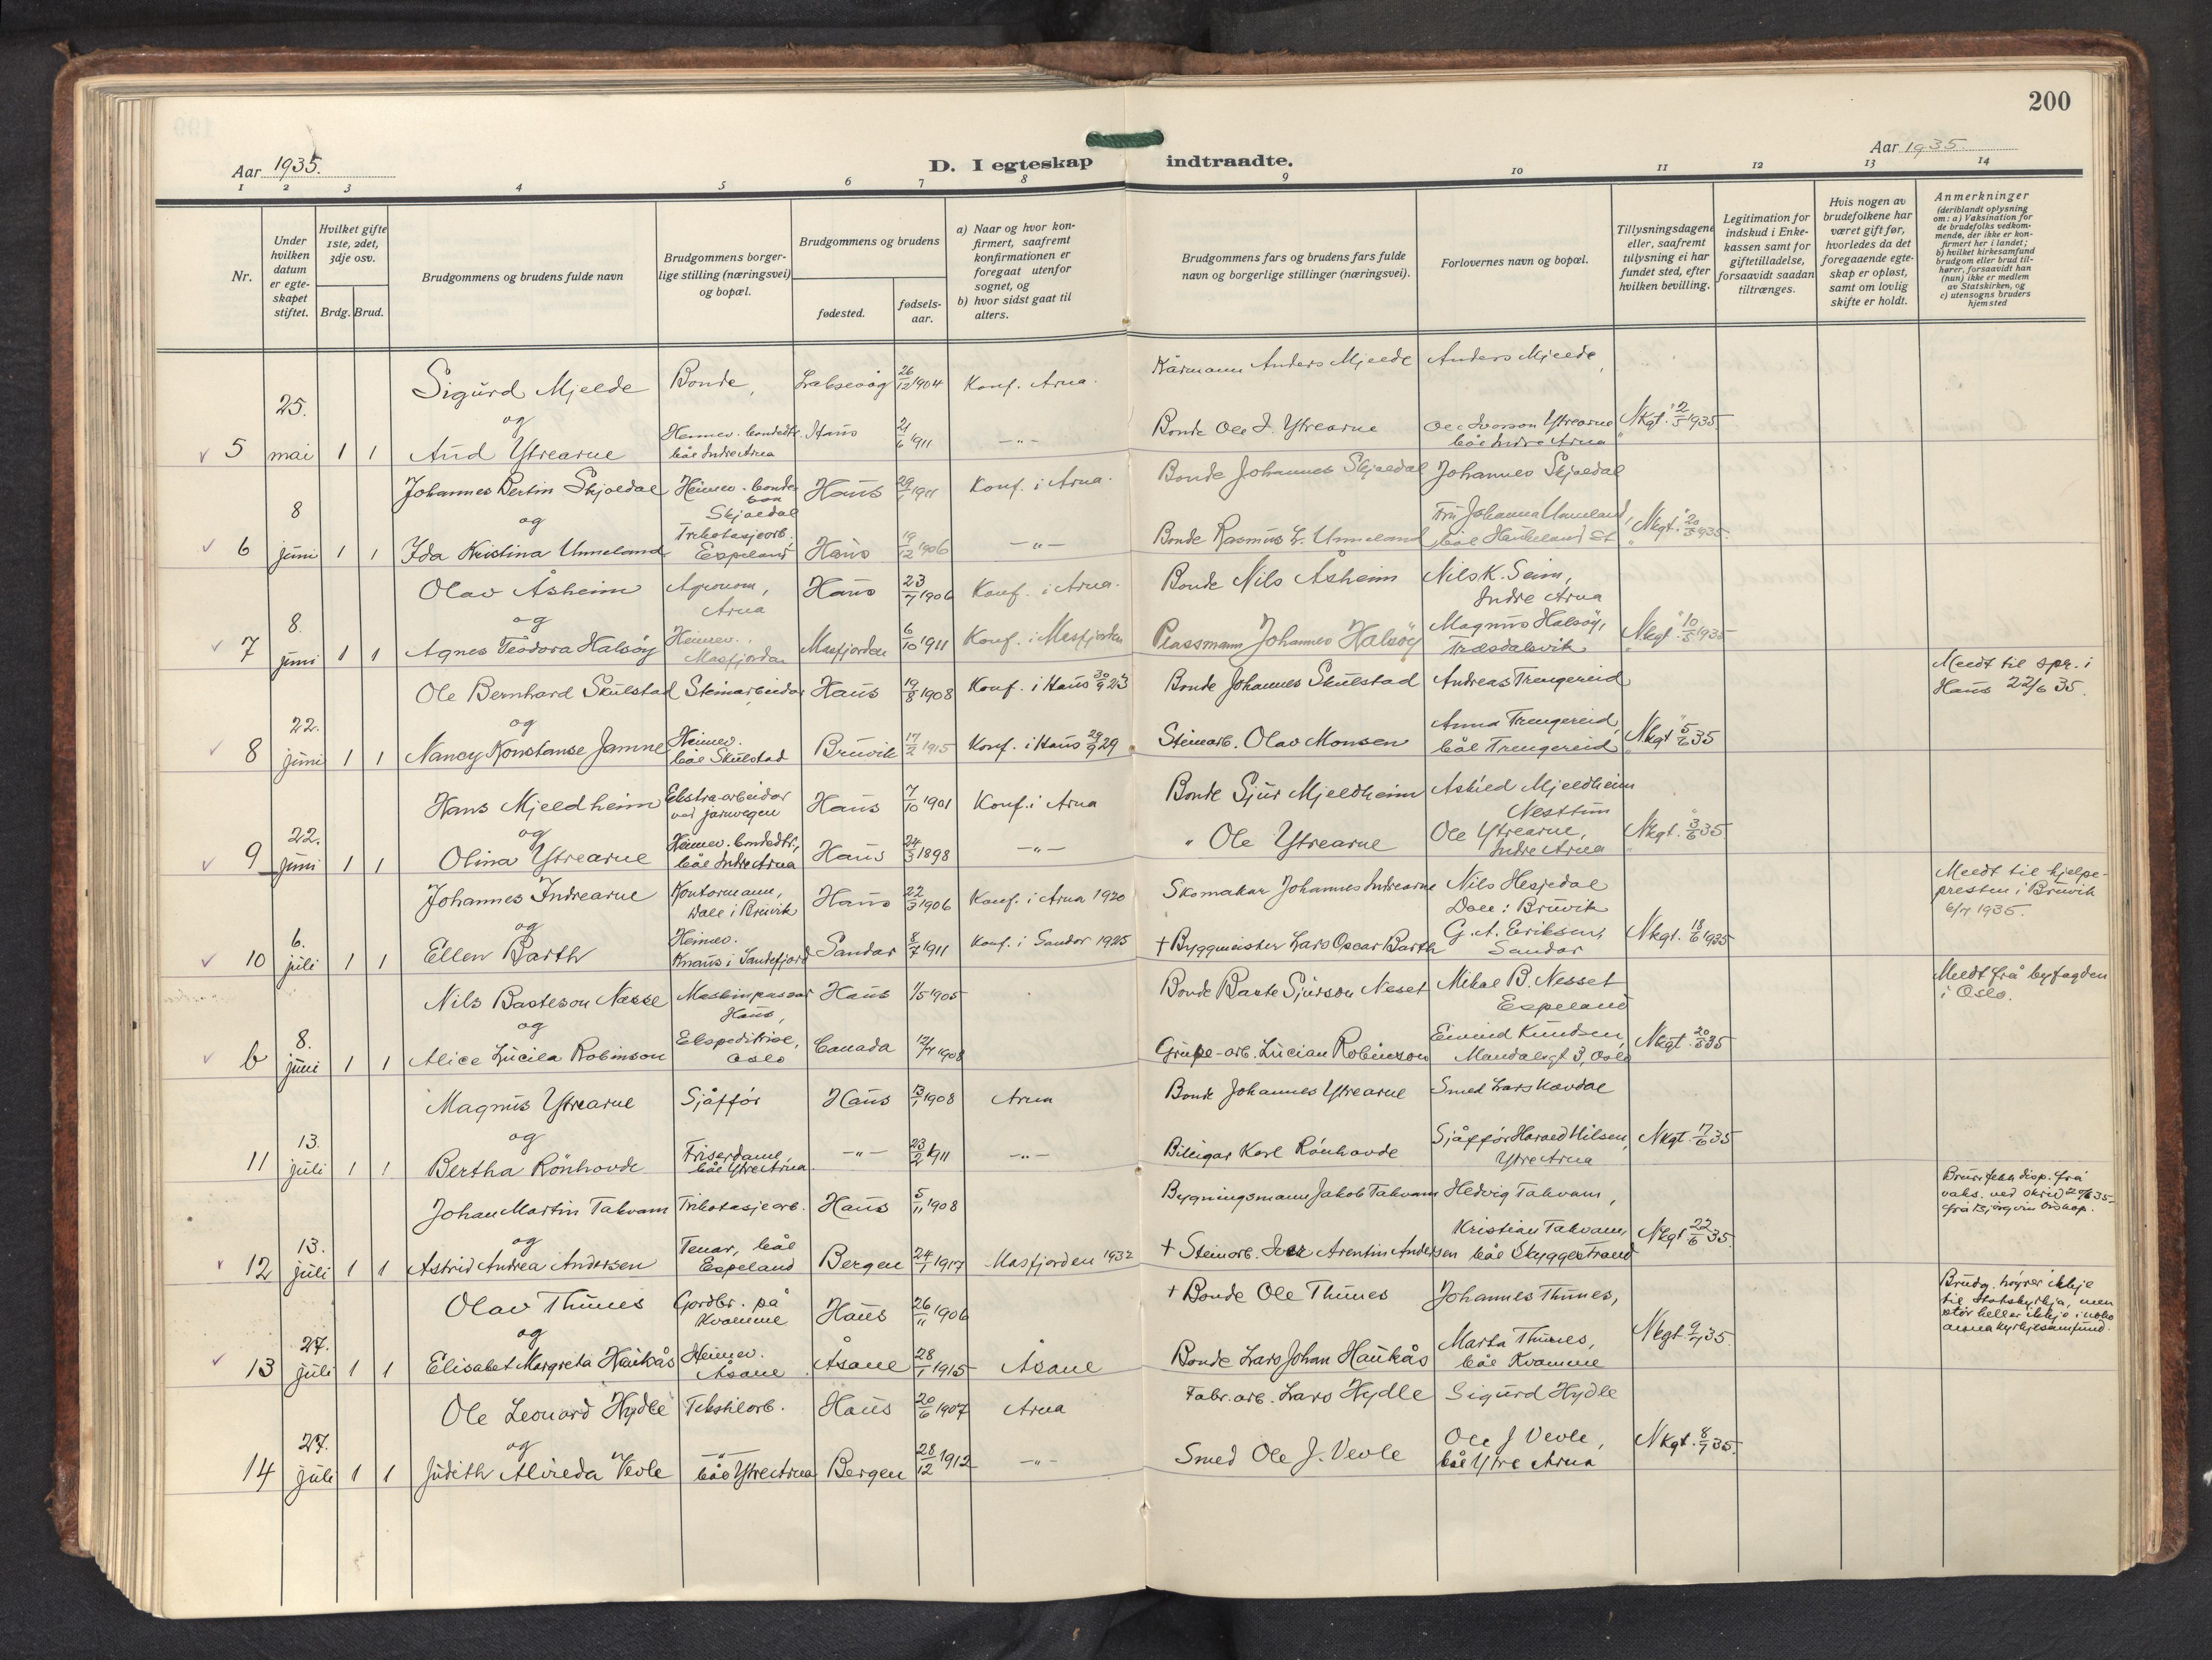 200
Aar 1935.
D. I egteskap indtraadte.
Aar 1935.
1 2 3 4 5 6 7 8 9 10 11 12 13 14
Nr.
Under hvilken datum er egteskapet stiftet.
Hvilket gifte 1ste, 2det, 3dje osv.
Brdg. Brud.
Brudgommens og brudens fulde navn
Brudgommens borgerlige stilling (næringsvei) og bopæl.
Brudgommens og brudens
fødested.
fødselsaar.
a) Naar og hvor konfirmert, saafremt konfirmationen er foregaat utenfor sognet, og
b) hvor sidst gaat til alters.
Brudgommens fars og brudens fars fulde navn og borgerlige stillinger (næringsvei).
Forlovernes navn og bopæl.
Tillysningsdagene eller, saafremt tillysning ei har fundet sted, efter hvilken bevilling.
Legitimation for indskud i Enkekassen samt for giftetilladelse, forsaavidt saadan tiltrænges.
Hvis nogen av brudefolkene har været gift før, hvorledes da det foregaaende egteskap er opløst, samt om lovlig skifte er holdt.
Anmerkninger (deriblandt oplysning om: a) Vaksination for de brudefolks vedkommende, der ikke er konfirmert her i landet; b) hvilket kirkesamfund brudgom eller brud tilhører, forsaavidt han (hun) ikke er medlem av Statskirken, og c) utensogns bruders hjemsted
Sigurd Mjelde Bonde, Laksevåg 26/12 1904 Konf. Arna. Kårmann Anders Mjelde Anders Mjelde,
25. og
5 mai 1 1 Aud Ytrearne Heimev. bondedtr. båe Indre Arna Haus 21/6 1911 -"- Bonde Ole I. Ytrearne Ole Iversson Ytrearne båe Indre Arna Nkgt. 2/5 1935
Johannes Bertin Skjoldal Heimev. bondeson Skjoldal Haus 29/1 1911 Konf. i Arna. Bonde Johannes Skjoldal Johannes Skjoldal
8 og
6 juni 1 1 Ida Kristina Unneland Trikotasjearb. Espeland Haus 19/12 1906 -"- Bonde Rasmus L. Unneland Fru Johanna Unneland, båe Haukeland St Nkgt. 20/5 1935.
Olav Åsheim Agronom, Arna Haus 23/7 1906 Konf. i Arna. Bonde Nils Åsheim Nils K. Seim, Indre Arna
8. og
7 juni 1 1 Agnes Teodora Halsøy Heimev. Masfjorden Masfjorden 6/10 1911 Konf. i Masfjorden Plassmann Johannes Halsøy Magnus Halsøy, Trædalsvik Nkgt. 10/5 1935
Ole Bernhard Skulstad Steinarbeidar Haus 19/8 1908 Konf. i Haus 30/9 23 Bonde Johannes Skulstad Andreas Trengereid Meldt til spr. i Haus 22/6 35.
22. og
8 juni 1 1 Nancy Konstanse Jamne Heimev. båe Skulstad Bruvik 17/2 1915 Konf. i Haus 29/9 29 Steinarb. Olav Monsen Anna Trengereid, båe Trengereid Nkgt 5/6 35
Hans Mjeldheim Ekstra-arbeidar ved jarnvegen Haus 7/10 1901 Konf. i Arna Bonde Sjur Mjeldheim Askild Mjeldheim Nesttun
22. og
9 juni 1 1 Olina Ytrearne Heimev. bondedtr., båe Indre Arna Haus 24/3 1898 -"- " Ole Ytrearne Ole Ytrearne, Indre Arna Nkgt. 3/6 35
Johannes Indrearne Kontormann, Dale i Bruvik Haus 22/3 1906 Konf. i Arna 1920 Skomakar Johannes Indrearne Nils Hesjedal Dale i Bruvik Meldt til hjelpepresten i Bruvik 6/7 1935.
6. og
10 juli 1 1 Ellen Barth Heimev. Knaus i Sandefjord Sandar 8/7 1911 Konf. i Sandar 1925 + Byggmeister Lars Oscar Barth G. A. Eriksen, Sandar Nkgt. 18/6 1935
Nils Bårteson Nesse Maskinpassar Haus, Haus 1/5 1905 Bonde Bårte Sjursson Neset Mikal B. Nesset Espeland Meldt frå byfogden i Oslo.
8. og
b juni 1 1 Alice Lucila Robinson Ekspeditrise, Oslo Canada 12/4 1908 Grube-arb. Lucian Robinson Eivind Knudsen, Mandalsgt 3, Oslo Nkgt. 20/5 35
Magnus Ytrearne Sjåffør Haus 13/1 1908 Arna Bonde Johannes Ytrearne Smed Lars Kovdal
13. og
11 juli 1 1 Bertha Rönhovde Friserdame, båe Ytre Arna. -"- 23/2 1911 -"- Bileigar Karl Rönhovde Sjåffør Harald Nilsen, Ytre Arna Nkgt. 7/6 35
Johan Martin Takvam Trikotasjearb. Haus 5/11 1908 Bygningsmann Jakob Takvam Hedvig Takvam, Brura fekk disp. frå vaks. ved skriv 35 frå Bjørgvin bispop.
13. og
12 juli 1 1 Astrid Andrea Andersen Tenar, båe Espeland Bergen 24/1 1917 Masfjorden 1932 + Steinarb. Iver Arentin Andersen Kristian Takvam, båe Skyggestrand Nkgt 22/6 35.
Olav Thunes Gardbr. på Kvamme Haus 26/11 1906 + Bonde Ole Thunes Johannes Thunes, Brudg. høyrer ikkje til Statskyrkja, men står heller ikkje i noko anna kyrkjesamfund.
27. og
13 juli 1 1 Elisabet Margreta Haukås Heimev. Åsane Åsane 28/1 1915 Åsane Bonde Lars Johan Haukås Marta Thunes, båe Kvamme Nkgt 9/7 35.
Ole Leonard Hydle Tekstilarb. Haus 20/6 1907 Arna Fabr.arb. Lars Hydle Sigurd Hydle
27. og
14 juli 1 1 Judith Alvieda Vevle -"- båe Ytre Arna Bergen 28/12 1912 -"- Smed Ole J. Vevle Ole J Vevle, båe Ytre Arna Nkgt. 8/7 35.